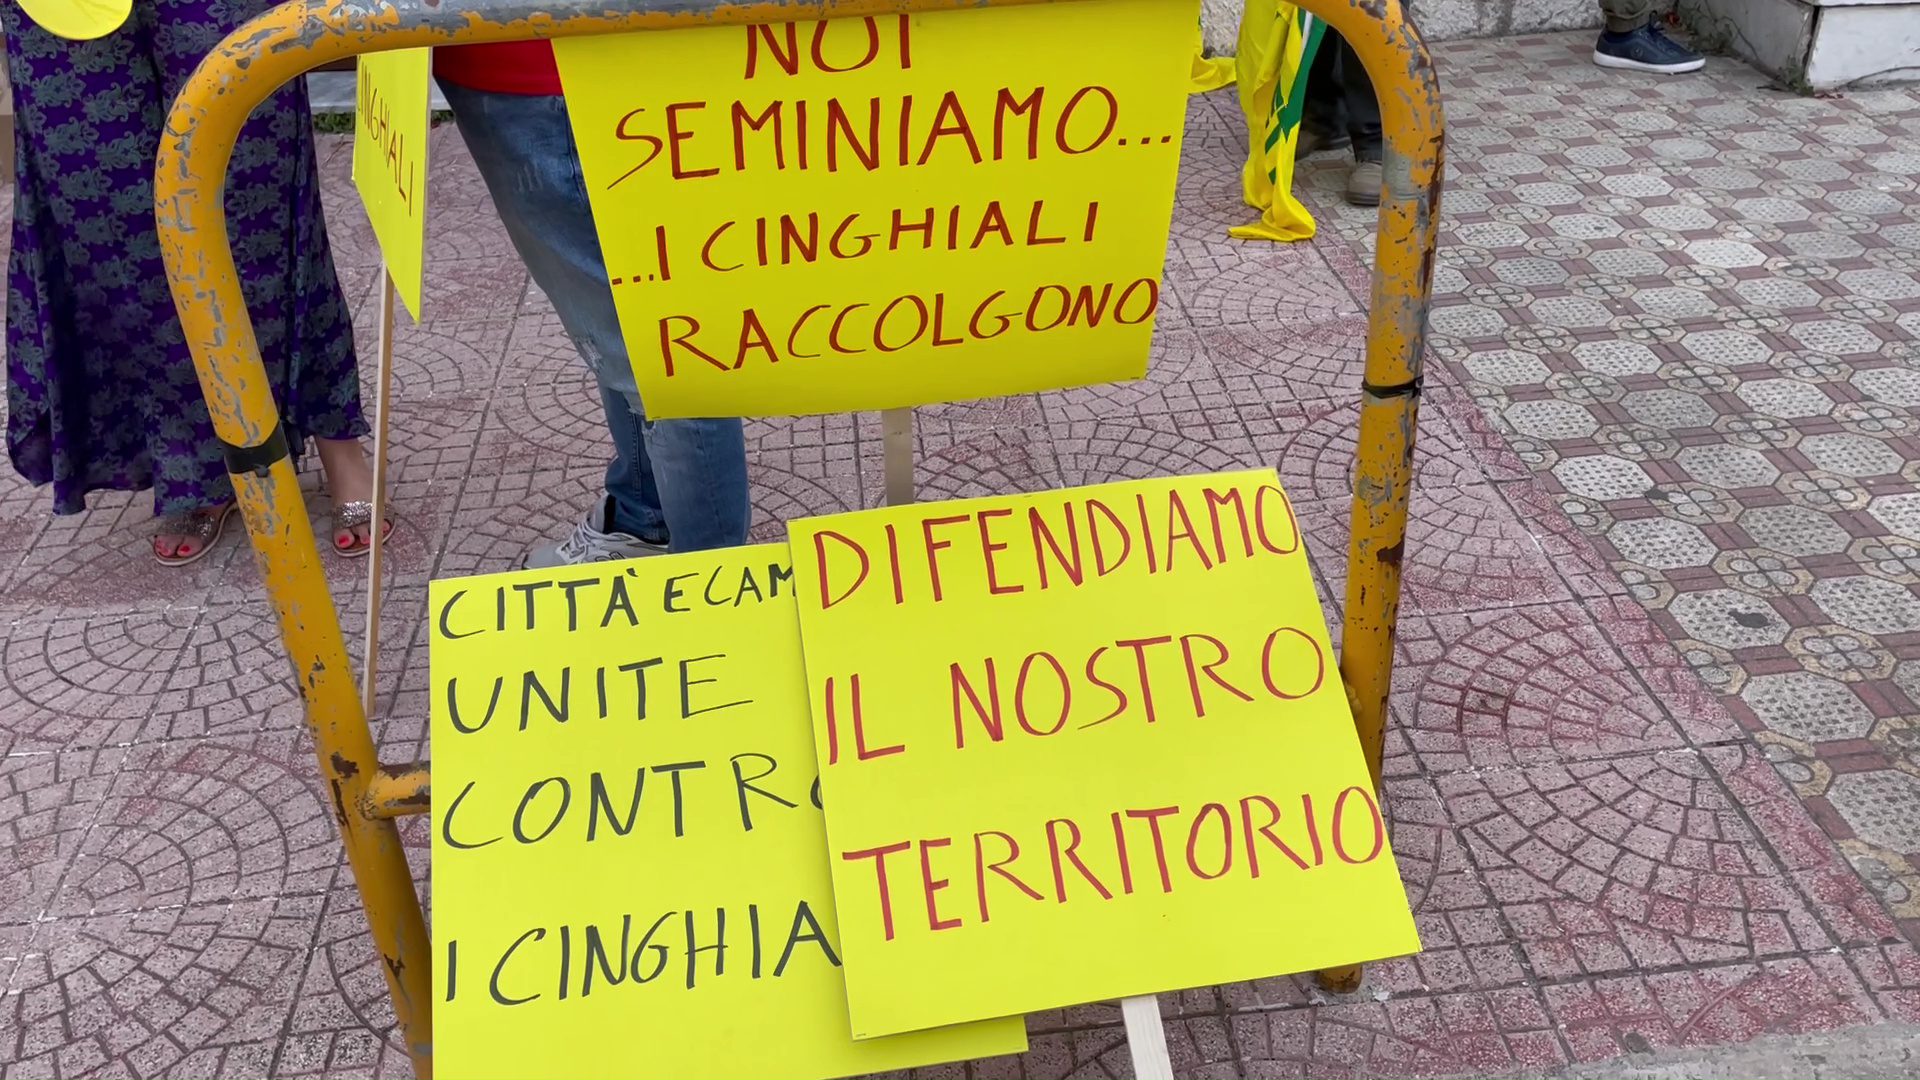 NOI
SEMINIAMO...
...I CINGHIALI
RACCOLGONO
CINGHIALI
CITTÀ E CAM
UNITE
CONTRO
I CINGHIA
DIFENDIAMO
IL NOSTRO
TERRITORIO